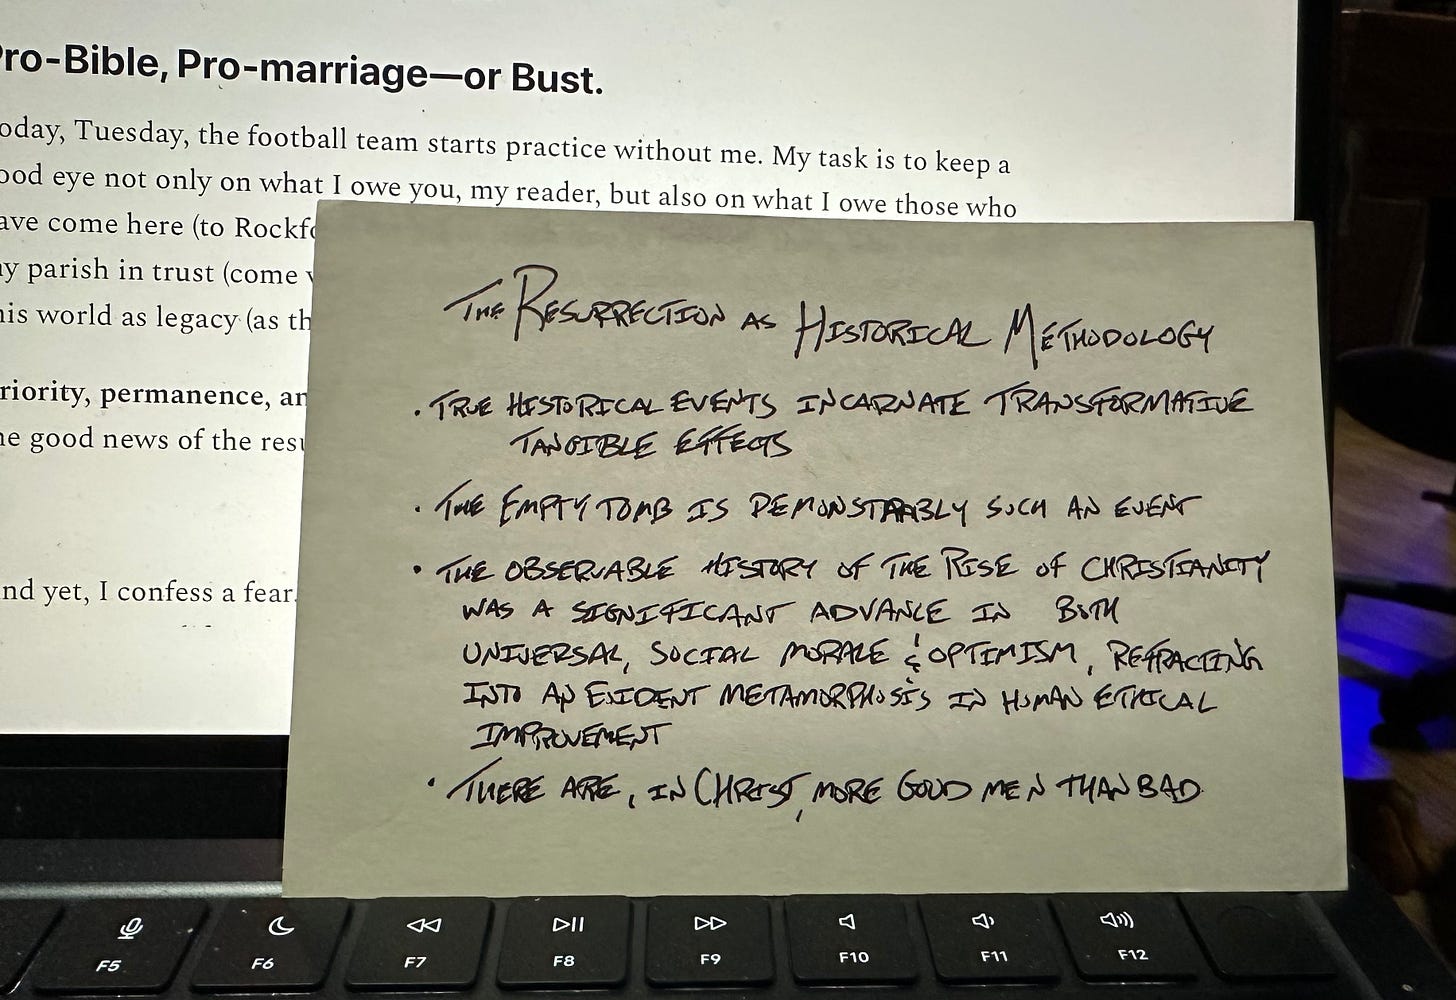 Pro-Bible, Pro-marriage—or Bust.
oday, Tuesday, the football team starts practice without me. My task is to keep a
ood eye not only on what I owe you, my reader, but also on what I owe those who
ave come here (to Rockfo
y parish in trust (come
his world as legacy (as th
riority, permanence, an
he good news of the resu
nd yet, I confess a fear.
THE RESURRECTION AS HISTORICAL METHODOLOGY
· TRUE HISTORICAL EVENTS INCARNATE TRANSFORMATIVE
TANGIBLE EFFECTS
· THE EMPTY TOMB IS DEMONSTRABLY SUCH AN EVENT
· THE OBSERVABLE HISTORY OF THE RISE OF CHRISTIANITY
WAS A SIGNIFICANT ADVANCE IN BOTH
UNIVERSAL, SOCIAL MORALE & OPTIMISM, REFRACTING
INTO AN EVIDENT METAMORPHOSIS IN HUMAN ETHICAL
IMPROVEMENT
· THERE ARE, IN CHRIST, MORE GOOD MEN THAN BAD
F5 F6 F7 F8 F9 F10 F11 F12